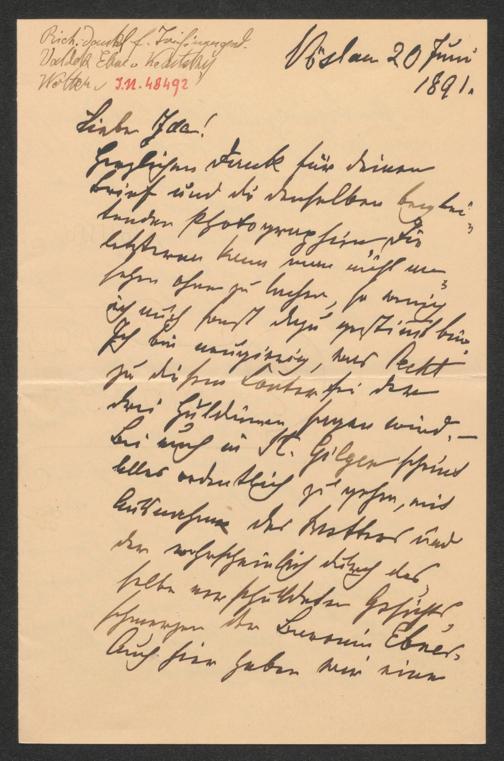 Vöslau 20 Juni
1891.
J.N. 48492
Liebe Ida!
Herzlichen Dank für deinen
Brief und die denselben beglei-
tenden Photographien. Die
letzteren kann man nicht an-
sehen ohne zu lachen, so wenig
ich auch sonst dazu gestimmt bin.
Ich bin neugierig, was
zu diesem Conterfei der
drei Huldinnen sagen wird. –
Bei euch in St. Gilgen scheint
alles ordentlich zu gehen, mit
Ausnahme des Wetters und
der wahrscheinlich durch das-
selbe verschuldeten Gesichts-
schmerzen der Baronin Ebner.
Auch hier haben wir eine